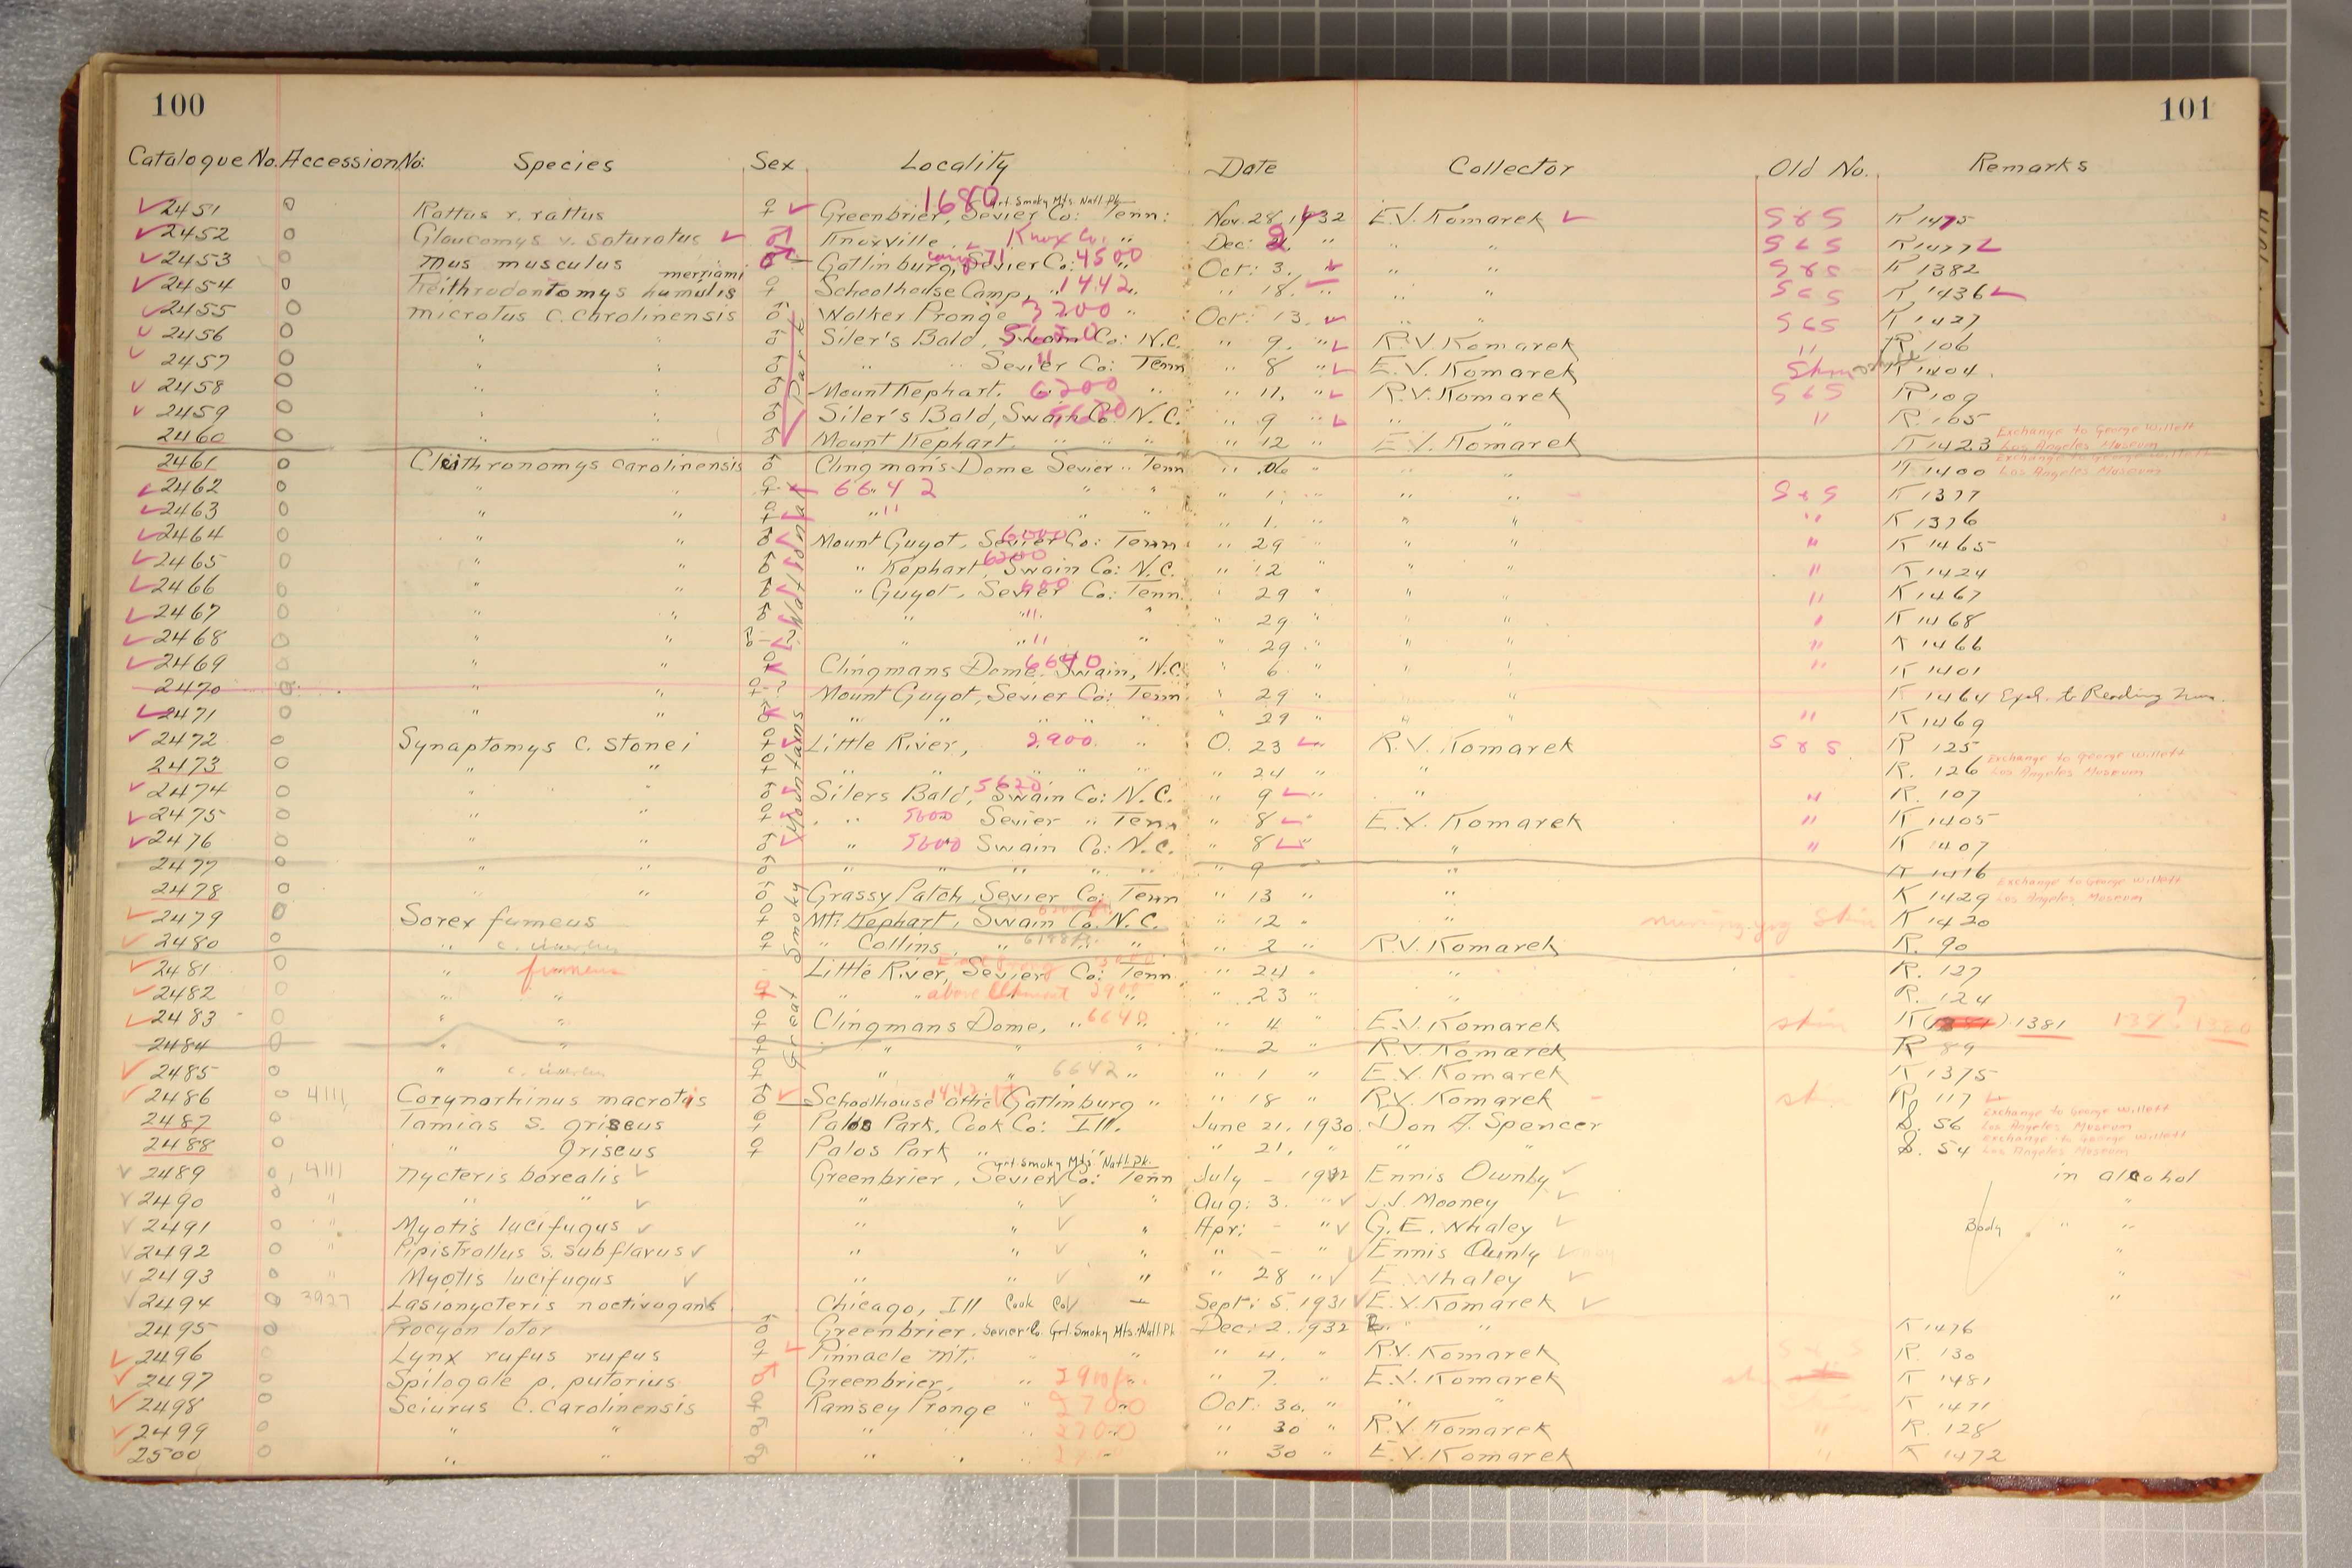 100
101
Catalogue No. Accession No: Species Sex Locality Date Collector Old No. Remarks
1680 Grt. Smoky Mts. Natl. Pk.
2451 0 Rattus r. rattus ♀ Greenbrier, Sevier Co: Tenn: Nov. 28, 1932 E.V. Komarek S & S K 1475
2452 0 Glaucomys v. saturatus ♂ Knoxville Knox Co. " Dec: " " S & S K 1477
2453 0 Mus musculus ♂ Gatlinburg, Sevier Co: 4500 " Oct: 3. " " S & S K 1382
merriami
2454 0 Reithrodontomys humulis ♀ Schoolhouse Camp, 1442 " " 18. " " " S & S K 1436
2455 0 Microtus c. carolinensis ♂ Walker Pronge 3200 " Oct: 13. " " S & S K 1427
2456 0 " " ♂ Siler's Bald, Swain Co: N.C. " 9. " R.V. Komarek " R 106
2457 0 " " ♂ " " Sevier Co: Tenn " 8 " E.V. Komarek Skin K 1404
2458 0 " " ♂ Mount Kephart. 6200 " " 11, " R.V. Komarek S & S R 109
2459 0 " " ♂ Siler's Bald, Swain Co: N.C. 5620 " 9 " " R. 105
2460 0 " " ♂ Mount Kephart. " " " " 12 " E.V. Komarek K 1423 Exchange to George Willett Los Angeles Museum
2461 0 Cleithronomys carolinensis ♂ Clingman's Dome Sevier " Tenn " 06 " " " K 1400 Exchange to George Willett Los Angeles Museum
2462 0 " " ♀ 6642 " " " 1. " " " S & S K 1377
2463 0 " " ♀ " " " " 1. " " " " K 1376
2464 0 " " ♂ Mount Guyot, Sevier Co: Tenn 6000 " 29 " " " K 1465
2465 0 " " ♂ " Kephart, Swain Co: N.C. 6200 " 12 " " " K 1424
2466 0 " " ♂ " Guyot, Sevier Co: Tenn. " 29 " " " " K 1467
2467 0 " " ♂ " " " " 29 " " " " K 1468
2468 0 " " ♂ - ? " " " " 29 " " " " K 1466
2469 0 " " ♀ Clingmans Dome, Swain, N.C. 6640 " 6 " " " " K 1401
2470 0 " " ♀ - ? Mount Guyot, Sevier Co: Tenn. " 29 " " K 1464 Exch. to Reading Mus.
2471 0 " " " " " " " 29 " " " " K 1469
2472 0 Synaptomys c. stonei ♀ Little River, 2900 " O. 23 " R.V. Komarek S & S R 125
2473 0 " " ♀ " " " " " " 24 " " R. 126 Exchange to George Willett Los Angeles Museum
2474 0 " " ♂ Silers Bald, Swain Co: N.C. 5620 " 9 " " " R. 107
2475 0 " " ♀ " " 5600 Sevier " Tenn " 8 " E.V. Komarek " K 1405
2476 0 " " ♂ " 5600 Swain Co: N.C. " 8 " " " K 1407
2477 0 " " ♂ " " " " " " 9 " K 1416
2478 0 " " ♂ Grassy Patch, Sevier Co: Tenn " 13 " " K 1429 Exchange to George Willett Los Angeles Museum
2479 0 Sorex fumeus ♀ Mt. Kephart, Swain Co. N.C. " 12 " " Skin K 1420
2480 0 " ♀ " Collins, " " " 2 " R.V. Komarek R. 90
2481 0 " fumeus Little River, Sevier Co: Tenn. " 24 " " R. 127
2482 0 " " ♀ " " above Elkmont 2900 " " 23 " " R. 124
2483 0 " " ♀ Clingmans Dome, " 6640 " " 4 " E.V. Komarek skin K 1381 1380
2484 0 " " ♀ " " " " 2 " R.V. Komarek R 89
2485 0 " ♀ " " 6642 " " 1 " E.V. Komarek K 1375
2486 0 4111 Corynorhinus macrotis ♂ Schoolhouse attic Gatlinburg " 1442 " 18 " R.V. Komarek R. 117
2487 0 Tamias s. griseus ♀ Palos Park, Cook Co: Ill. June 21, 1930 Don A. Spencer S. 56 Exchange to George Willett Los Angeles Museum
2488 0 " griseus ♀ Palos Park " " " " 21, " " " S. 54 Exchange to George Willett Los Angeles Museum
Grt. Smoky Mts. Natl. Pk.
2489 0 4111 Nycteris borealis Greenbrier, Sevier Co: Tenn July - 1932 Ennis Ownby in alcohol
2490 0 " " " " " " Aug: 3. " J.J. Mooney "
2491 0 " Myotis lucifugus " " " Apr: - " G.E. Whaley Body " "
2492 0 " Pipistrellus s. subflavus " " " " - " Ennis Ounly "
2493 0 " Myotis lucifugus " " " " 28 " E. Whaley "
2494 0 3927 Lasionycteris noctivagans Chicago, Ill Cook Co. Sept: 5. 1931 E.V. Komarek "
2495 0 Procyon lotor ♂ Greenbrier. Sevier Co. Grt. Smoky Mts. Natl. Pk Dec: 2. 1932 " " K 1476
2496 0 Lynx rufus rufus ♀ Pinnacle Mt. " " " 4. " R.V. Komarek R. 130
2497 0 Spilogale p. putorius. ♂ Greenbrier. " " 7. " E.V. Komarek K 1481
2498 0 Sciurus c. carolinensis Ramsey Pronge " 2700 Oct: 30. " " " K 1471
2499 0 " " " " 2700 " 30 " R.V. Komarek " R. 128
2500 0 " " " " " 30 " E.V. Komarek " K 1472
Great Smoky Mountains National Park